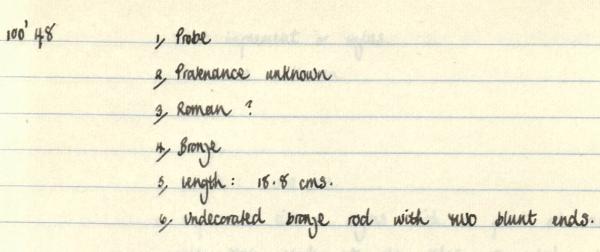 100' 48 1, Probe
2, Provenance unknown
3, Roman ?
4, Bronze
5, Length : 18.8 cms.
6, Undecorated bronze rod with two blunt ends.